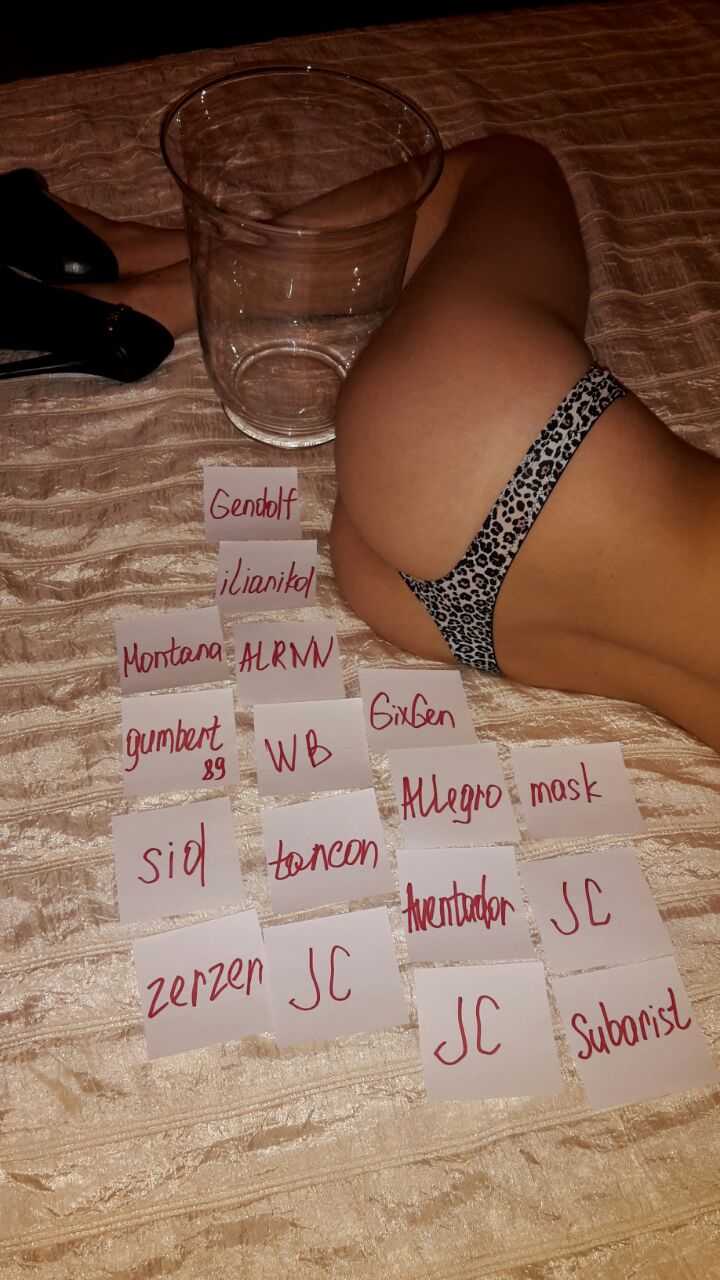 Gendolf
ilianikol
Montana
ALRNN
gumbert
89
WB
GixGen
Allegro
mask
sid
toncon
Aventador
JC
zerzen
JC
JC
Subarist